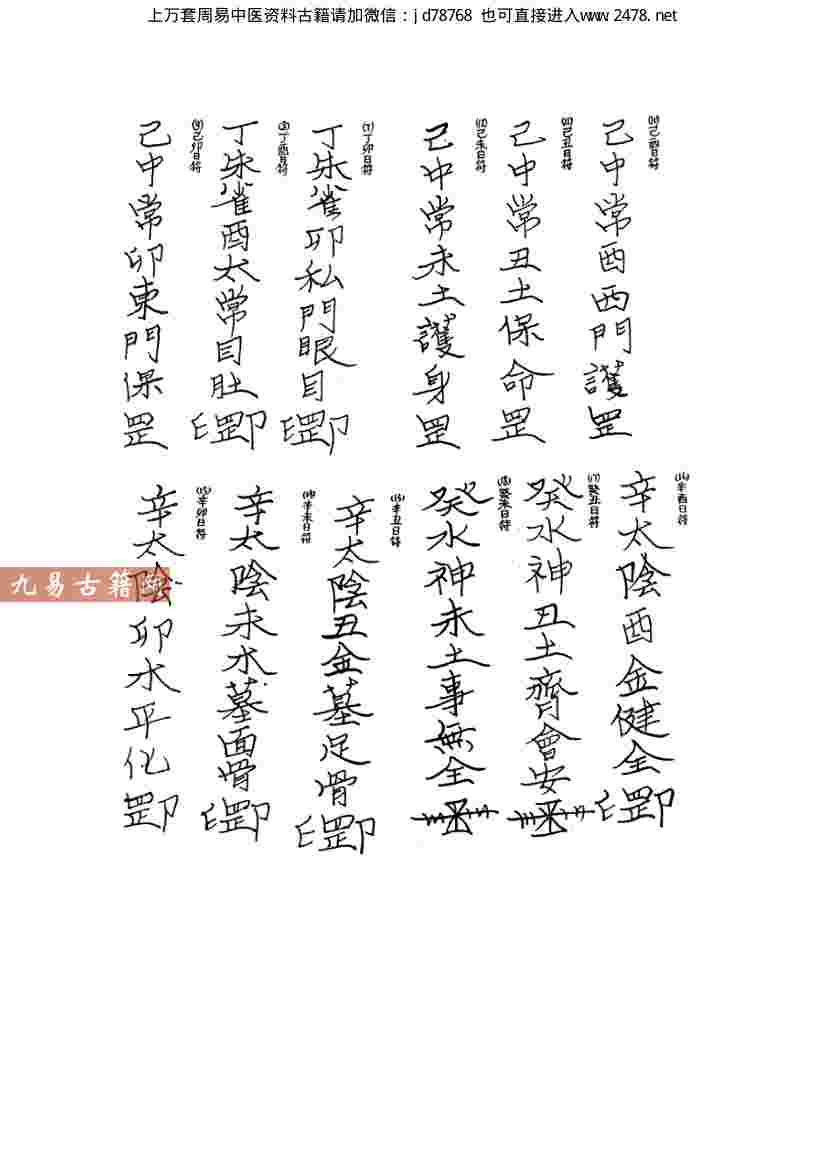 上万套周易中医资料古籍请加微信：jd78768 也可直接进入www.2478.net
己酉日符
己中常酉西門護罡
己丑日符
己中常丑土保命罡
(12)己未日符
己中常未土護身罡
(7)丁卯日符
丁朱雀卯私門眼目
丁酉日符
丁朱雀酉太常目肚
己卯日符
己中常卯東門保罡
(16)辛酉日符
辛太陰酉金健全
(17)癸丑日符
癸水神丑土齊會安
(18)癸未日符
癸水神未土事無全
(13)辛丑日符
辛太陰丑金墓足骨
辛未日符
辛太陰未水墓面骨
(15)辛卯日符
辛太陰卯水平化
九易古籍